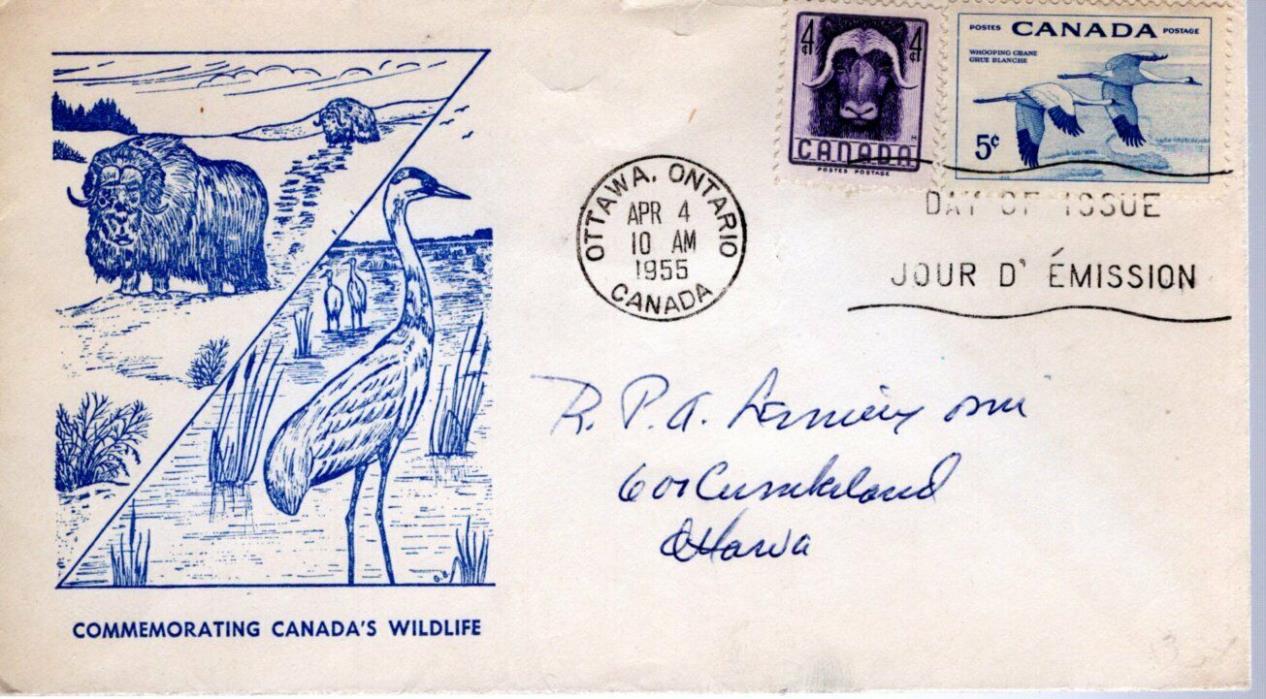 4¢ 4¢
CANADA
POSTES POSTAGE
POSTES CANADA POSTAGE
WHOOPING CRANE
GRUE BLANCHE
5¢
OTTAWA, ONTARIO
APR 4
10 AM
1955
CANADA
DAY OF ISSUE
JOUR D' ÉMISSION
R. P. A.
601 Cumberland
Ottawa
COMMEMORATING CANADA'S WILDLIFE